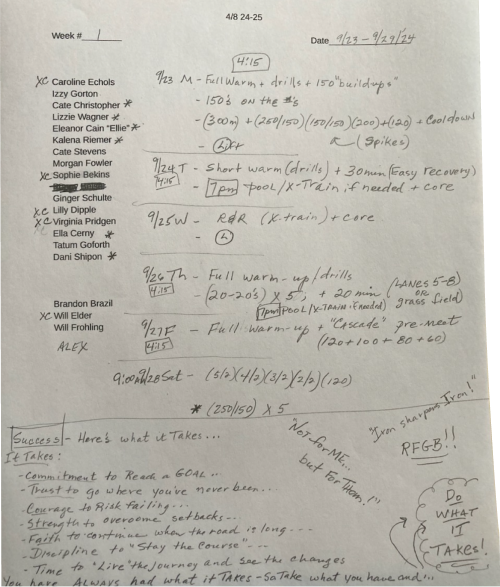 4/8 24-25
Week # 1
Date 9/23 - 9/29/24
4:15
XC Caroline Echols
Izzy Gorton
Cate Christopher *
Lizzie Wagner *
Eleanor Cain "Ellie" *
Kalena Riemer *
Cate Stevens
Morgan Fowler
XC Sophie Bekins
Ginger Schulte
X.C Lilly Dipple
XC Virginia Pridgen
Ella Cerny *
Tatum Goforth
Dani Shipon *
Brandon Brazil
XC Will Elder
Will Frohling
ALEX
9/23 M - Full Warm + drills + 150 "buildups"
- 150's on the #'s
- (300m) + (250/150) (150/150) (200) + (120) + Cooldown
(Spikes)
9/24 T - Short warm (drills) + 30 min (Easy recovery)
4:15
- 7pm pool / X-Train, if needed + core
9/25 W - R&R (X-train) + core
9/26 Th - Full warm-up / drills
4:15
- (20-20's) X 5, + 20 min (LANES 5-8 or grass field)
7pm pool / X-Train if needed
9/27 F - Full warm-up + "Cascade" pre-meet
4:15
(120+100+80+60)
9:00 9/28 Sat - (5/2)(4/2)(3/2)(2/2)(120)
* (250/150) X 5
Success - Here's what it Takes...
It Takes:
- Commitment to Reach a GOAL...
- Trust to go where you've never been...
- Courage to Risk failing...
- Strength to overcome setbacks...
- Faith to continue when the road is long...
- Discipline to "Stay the Course"...
- Time to "Live" the Journey and see the changes
You have ALWAYS had what it TAKES - So Take what you have and...
"Not for ME...
but For Them!"
"Iron sharpens Iron!"
RFGB!!
Do
WHAT
IT
TAKES!